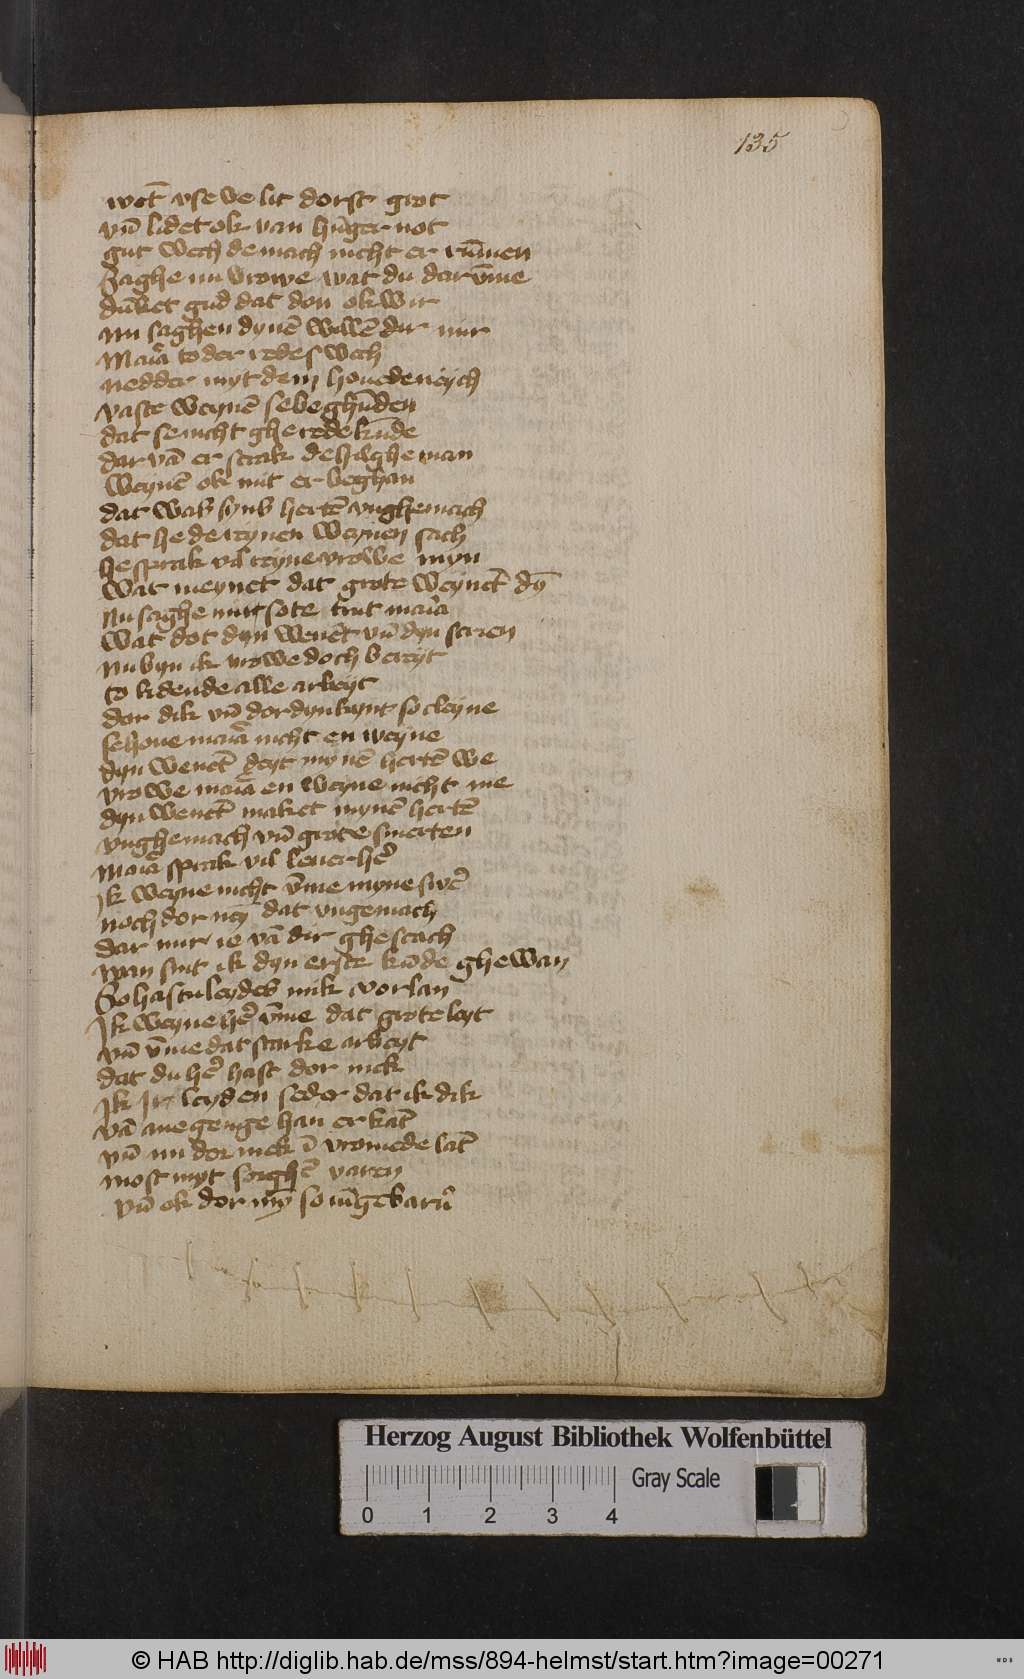 135
wēt vse ve lit dorst grot
vn̄ lidet ok van hūger not
gut wech de mach nicht er rūmen
Saghe nu vrowe wat du darv̄me
dūket gud dat don ok wir
nu saghen dynē willē dir mir
to der redes wech
nedder myt dem houede neych
vaste weynē se beghūden
dat se nicht ghe rede kūde
dar vā er sprak de hilghe man
weynē ok mit er beghan
dat was syns hertē vnghemach
dat he de reynen weynen sach
he sprak vil reyne vrowe myn
wat meynet dat grote weynēt dȳ
Nu saghe mir sote trut
wat dot dyn wenēt vn̄ dyn scren
Nu byn ik vrowe doch bereyt
to lidende alle arbeyt
dor dik vn̄ dor dyn kynt so cleyne
nicht en weyne
dyn wenēt deyt mynē hertē we
vrowe en weyne nicht me
dyn wenēt maket mynē hertē
vnghemach vn̄ grote smerten
sprak vil leuer
Ik weyne nicht v̄me myne
noch dor dat vngemach
dar mir ie vā dir ghescach
wan sint ik dyn erste kūde ghewan
So hastu leydes mik vorlan
Ik weyne v̄me dat grote leyt
vn̄ v̄me dat starke arbeyt
dat du hast dor mek
Ik leyden seder dat ik dik
vā ane genge han er kāt
vn̄ nu dor mek ī vromede lāt
most myt sorghē varen
vn̄ ok dor so
Herzog August Bibliothek Wolfenbüttel
Gray Scale
0 1 2 3 4
© HAB http://diglib.hab.de/mss/894-helmst/start.htm?image=00271
WDB